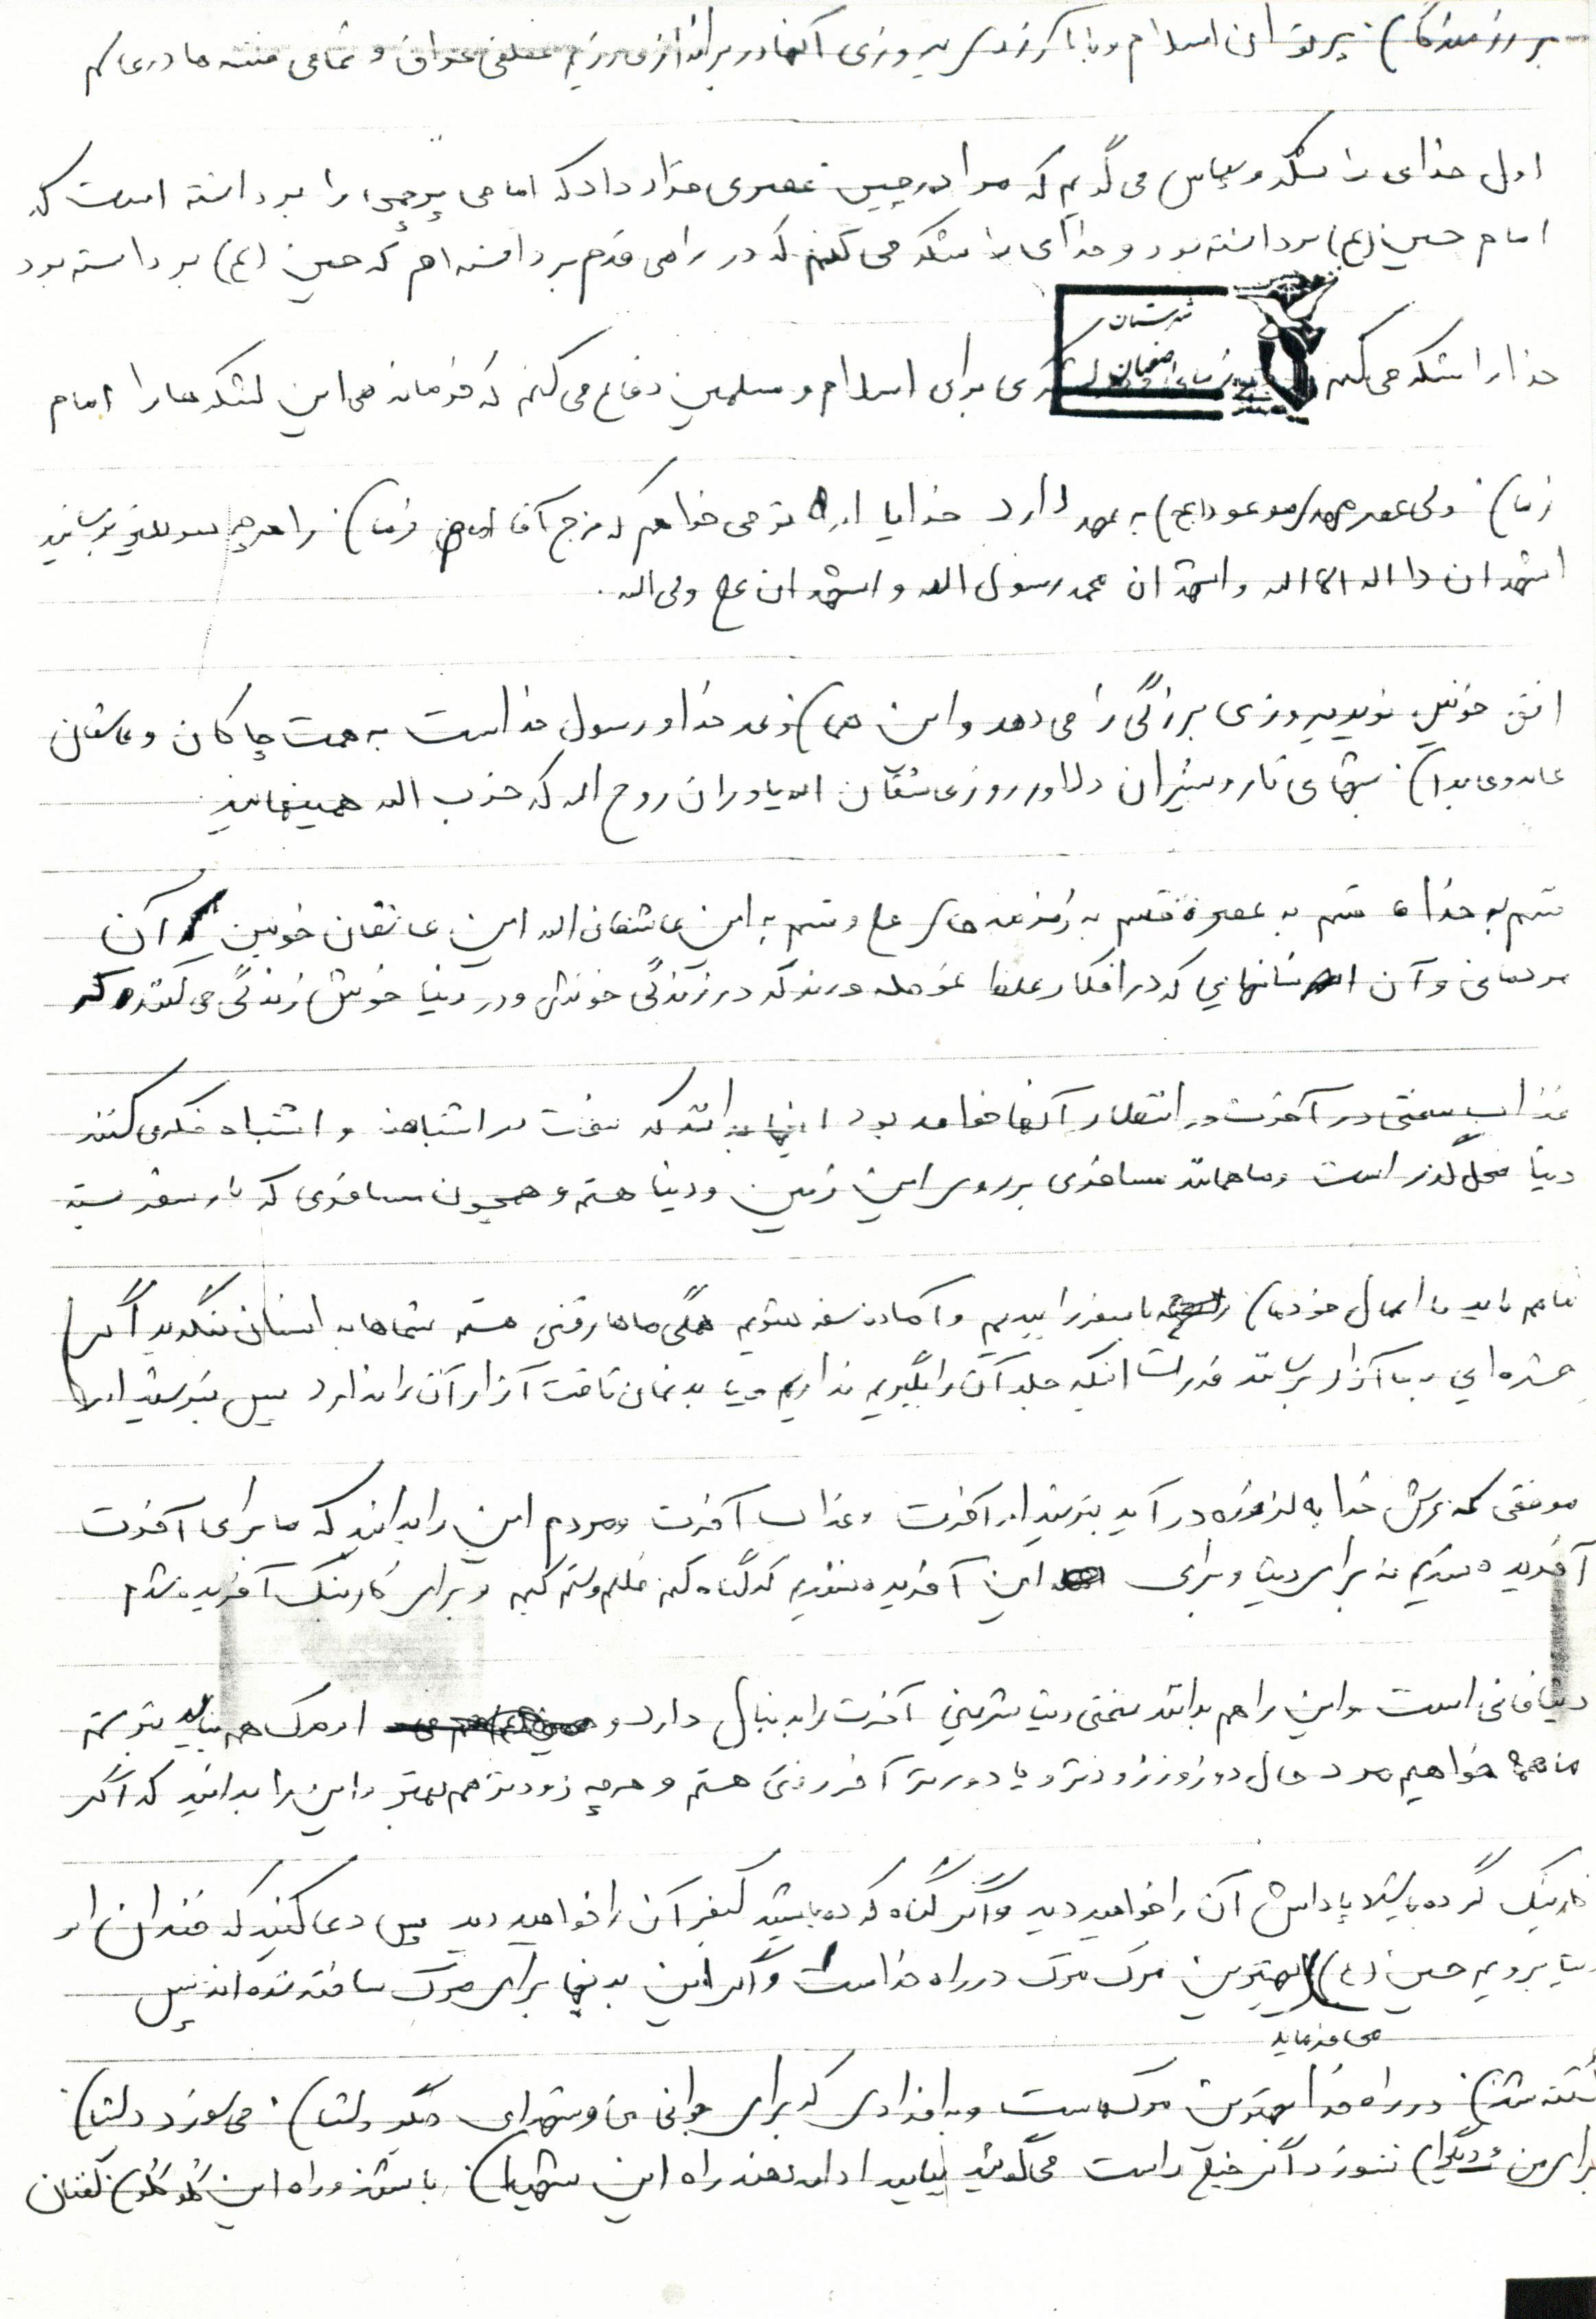 بر رزمندگان پر توان اسلام و با آرزوی پیروزی آنها در براندازی رژیم عفلقی عراق و تمامی فتنه ها در عالم
اول خدای را شکر و سپاس می گویم که مرا در چنین عصری قرار داد که امامی پرچمی را برداشته است که
امام حسین (ع) برداشته بود و خدای را شکر می کنم که در راهی قدم برداشته ام که حسین (ع) برداشته بود
شهرستان
اصفهان
خدا را شکر می کنم لشکری برای اسلام و مسلمین دفاع می کنم که فرماندهی این لشکرها را امام
زمان ولی عصر مهدی موعود (عج) به عهد دارد خدایا از تو می خواهم که فرج آقا امام زمان را هر چه سریعتر برسانید
اشهد ان لا اله الا الله و اشهد ان محمد رسول الله و اشهد ان علی ولی الله .
افق خونین نوید پیروزی بزرگی را می دهد و این همان وعد خدا و رسول خداست به همت چاکان و عاشقان
شبهای تار و شیران دلاور روز عاشقان الله یاوران روح الله که حزب الله همینهایند
قسم به خدا قسم به عصر قسم به رزمنده های علی و قسم به این عاشقان الله این عاشقان خونین آن
مردمانی و آن انسانهایی که در افکار غلط غوطه ورند که در زندگی خویش و در دنیا خویش زندگی می کنند که
عذاب سختی در آخرت در انتظار آنها خواهد بود اینها بدانند که سخت در اشتباهند و اشتباه فکر می کنند
دنیا محل گذر است و ما همانند مسافری بر روی این زمین و دنیا هستیم و همچون مسافری که بار سفر بسته
ما هم باید با اعمال خودمان بار سفر را ببندیم و آماده سفر شویم همگی ماها رفتنی هستیم شماها به انسان بنگرید اگر
حشره ای به ما آزار برساند قدرت اینکه جلو آن را بگیریم نداریم و یا بدنمان تاقت آزار آن را ندارد پس بترسید از
موقعی که عرش خدا به لرزه در آید بترسید از آخرت و عذاب آخرت و مردم این را بدانید که ما برای آخرت
آفریده شدیم نه برای دنیا و برای این آفریده نشدیم که گناه کنیم ظلم و ستم کنیم و برای کار نیک آفریده شدیم
دنیا فانی است و این را هم بدانند سختی دنیا شیرینی آخرت را به دنبال دارد و از مرگ هم نباید بترسیم
ما همه خواهیم مرد حال دو روز زودتر و یا دورتر آخر رفتنی هستیم و هر چه زودتر هم بهتر و این را بدانید که اگر
کار نیک کرده باشید پاداش آن را خواهید دید و اگر گناه کرده باشید کیفر آن را خواهید دید پس دعا کنید که خندان از
دنیا برویم حسین (ع) بهترین مرگ مرگ در راه خداست و اگر این بدنها برای مرگ ساخته شده اند پس
می فرماید
کشته شدن در راه خدا بهترین مرگهاست و به افرادی که برای جوانی من و شهدای دیگر دلشان می سوزد دلشان
برای من و دیگران نسوزد اگر خیلی راست می گوئید بیایید ادامه دهنده راه این شهیدان باشند و راه این گلگون کفنان